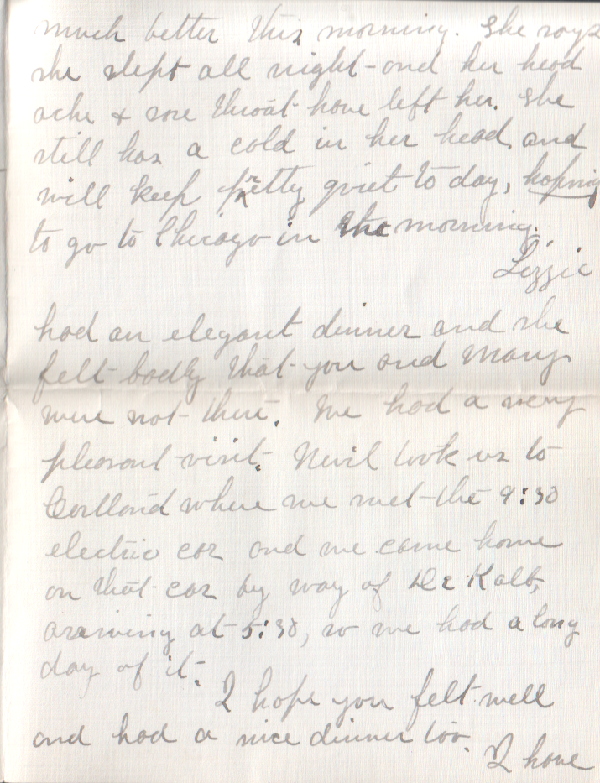 much better this morning. She says
she slept all night - and her head
ache & sore throat have left her. She
still has a cold in her head, and
will keep pretty quiet to day, hoping
to go to Chicago in the morning.
Lizzie
had an elegant dinner and she
felt badly that you and Mary
were not there. We had a very
pleasant visit. Nevil took us to
Cortland where we met the 9:30
electric car and we came home
on that car by way of De Kalb,
arriving at 5:30, so we had a long
day of it.
I hope you felt well
and had a nice dinner too.
I have